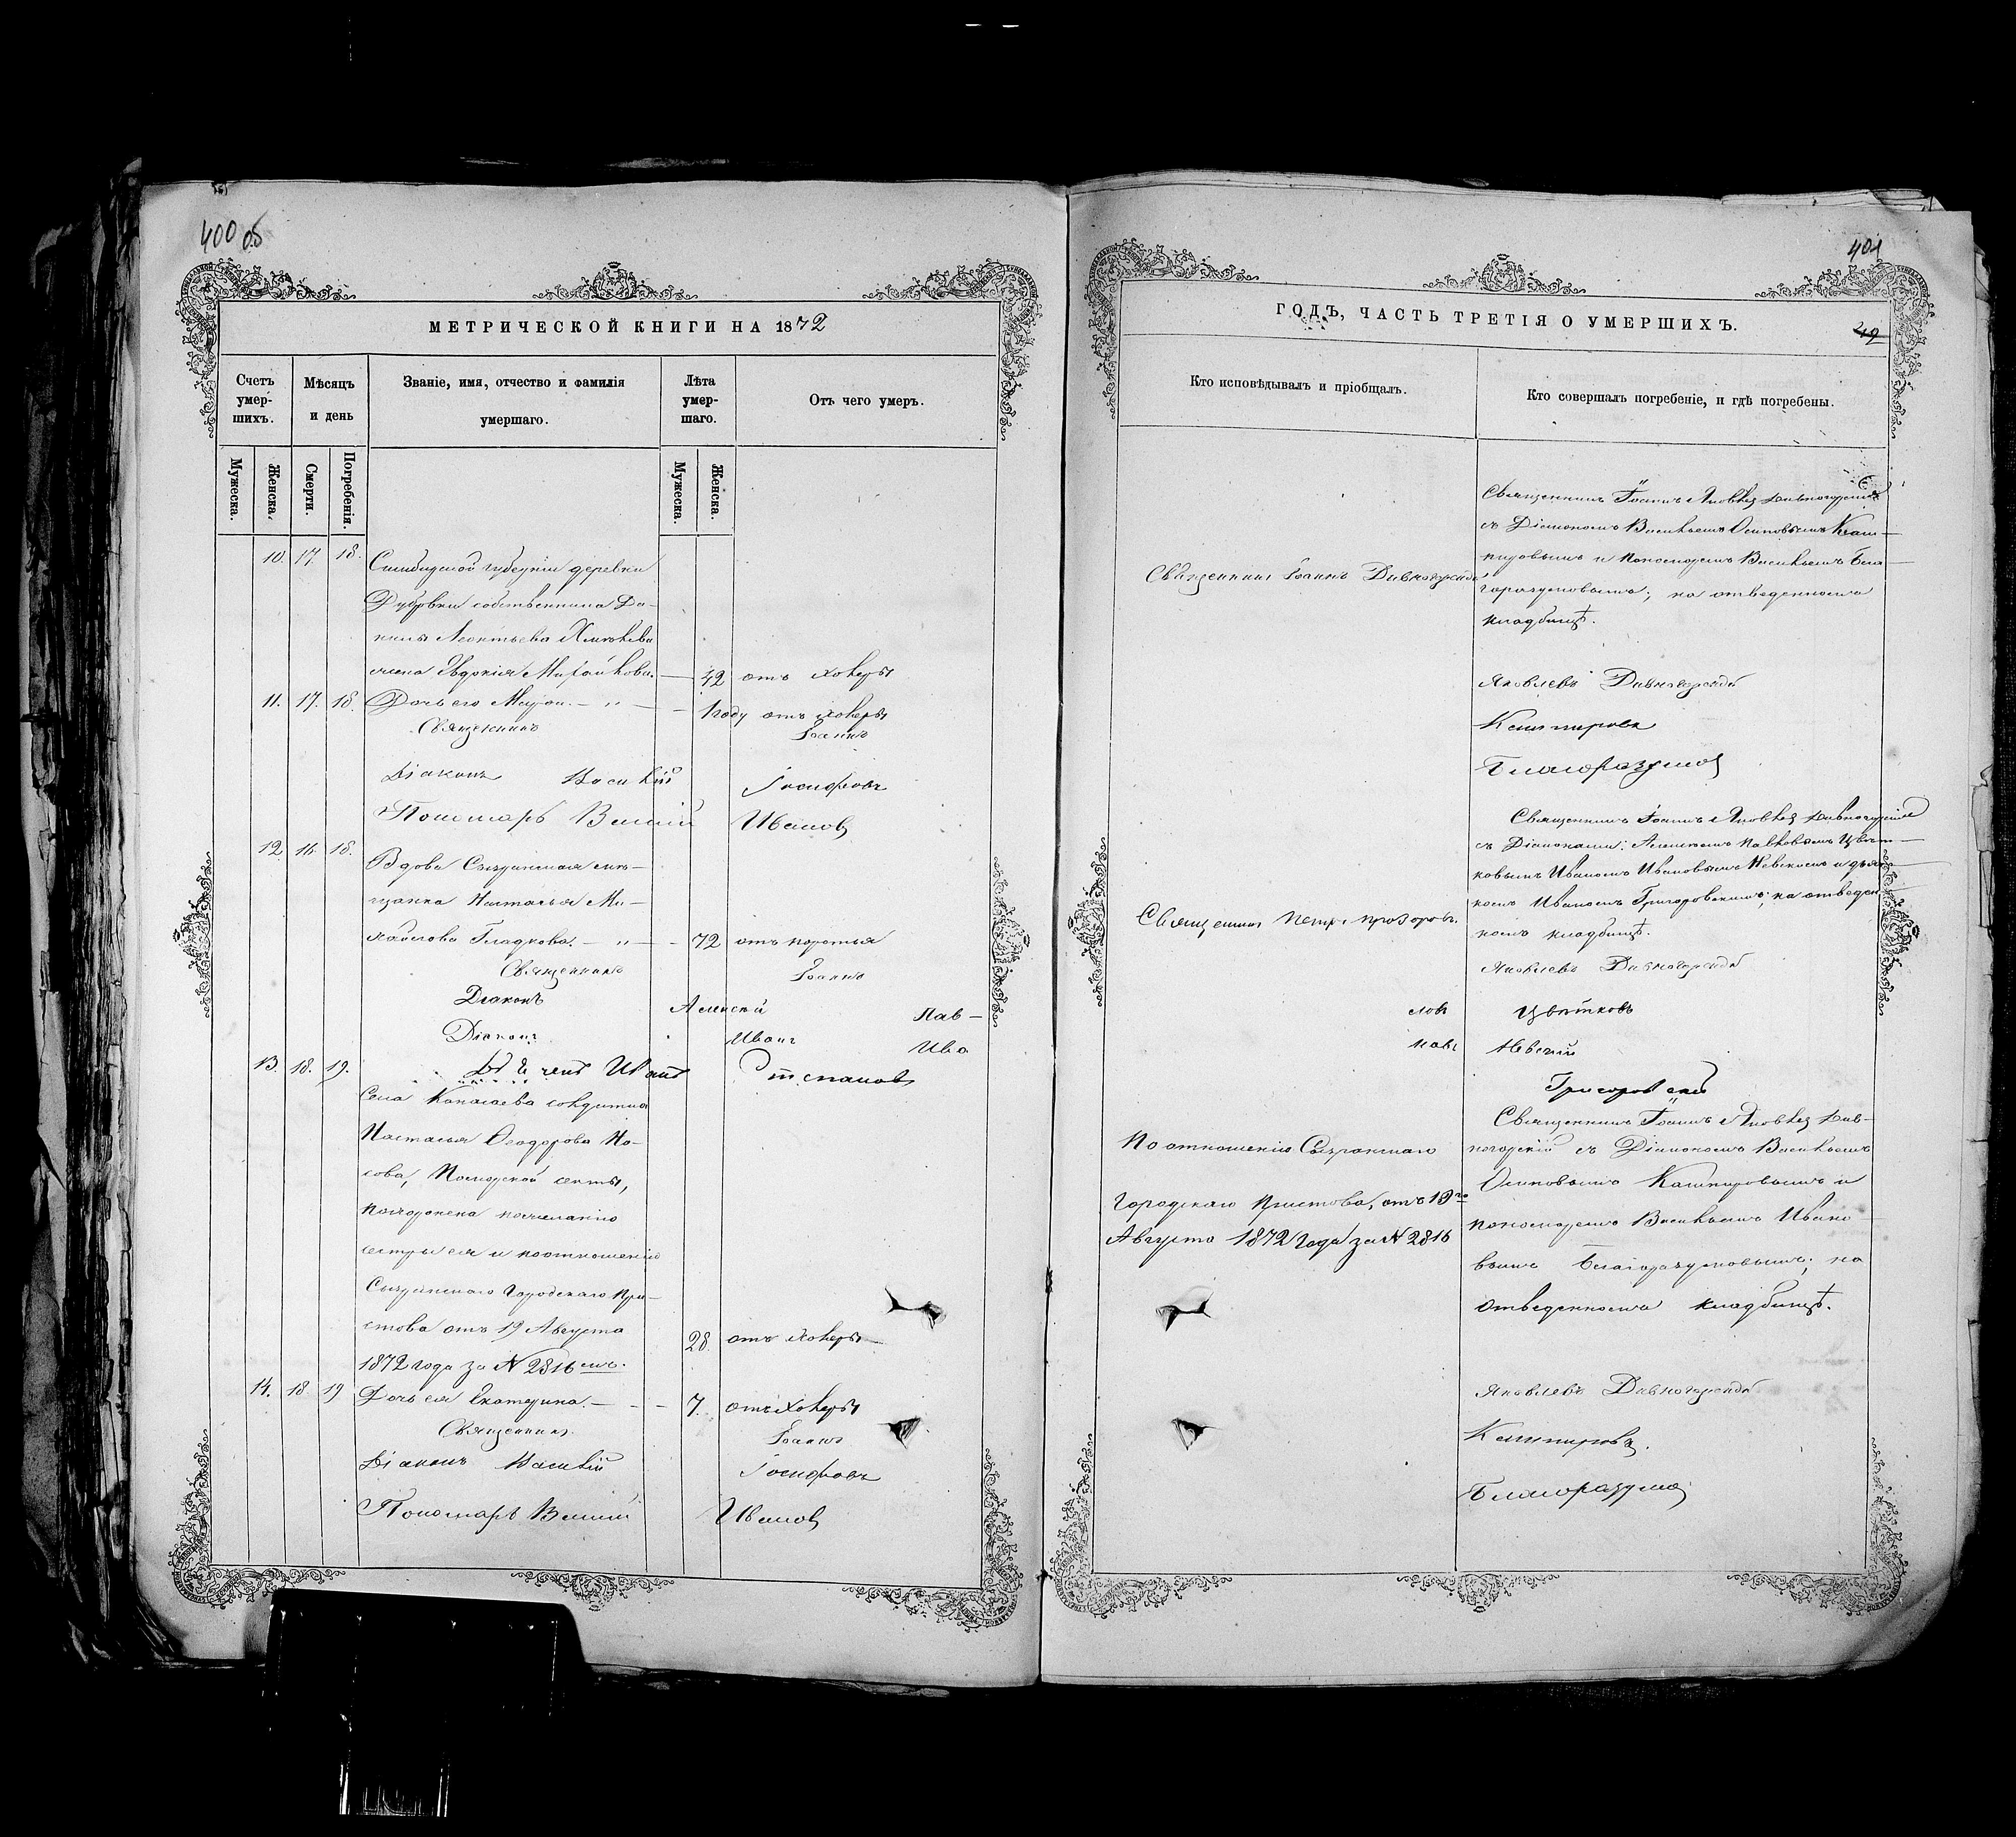 400 об
МЕТРИЧЕСКОЙ КНИГИ НА 1872
Счетъ умер-шихъ.
Мѣсяцъ и день
Званіе, имя, отчество и фамилія умершаго.
Лѣта умер-шаго.
Отъ чего умеръ.
Мужеска.
Женска.
Смерти.
Погребенія.
Мужеска.
Женска.
10. 17. 18.
Симбирской губерніи деревни
Дубровки собственника Да-
нилы Леонтьева
жена Евдокія Михайлова. — 42 отъ холеры
11. 17. 18. Дочь его — " — 1 году отъ холеры
Священникъ Іоаннъ
Діаконъ Василій Іосифовъ
Пономарь Василій Ивановъ
12. 16. 18.
Вдова Сызранская мѣ-
щанка Наталья Ми-
хайлова Гладкова. — " — 72 отъ
Священникъ Іоаннъ
Діаконъ Алексѣй Пав-
Діаконъ Иванъ Ива
Иванъ Степановъ
13. 18. 19.
Села солдатка
Настасья Ѳеодорова Но-
сова, Поморской секты,
похоронена по желанію
сестры ея и по отношенію
Сызранскаго Городскаго При-
става отъ 19 Августа
1872 года за № 2816 мъ. 28. отъ холеры
14. 18. 19 Дочь ея Екатерина. — — — 7. отъ холеры
Священникъ Іоаннъ
Діаконъ Василій Іосифовъ
Пономарь Василій Ивановъ
401
ГОДЪ, ЧАСТЬ ТРЕТІЯ О УМЕРШИХЪ.
49
Кто исповѣдывалъ и пріобщалъ.
Кто совершалъ погребеніе, и гдѣ погребены.
Священникъ Іоаннъ Дивногорскій
Священникъ Іоаннъ Яковлев Дивногорскій
съ Діакономъ Васильемъ Осиповымъ Каш-
пировымъ и пономаремъ Васильемъ Бла-
горазумовымъ; на отведенномъ
кладбищѣ.
Яковлевъ Дивногорскій
Кашпировъ
Благоразумов
Священникъ Петръ Прозоровъ.
Священникъ Іоаннъ Яковлев Дивногорскій
съ Діаконами: Алексѣемъ Павловымъ Цвѣт-
ковымъ Иваномъ Ивановымъ Невскимъ и дьяч-
комъ Иваномъ Григоровскимъ; на отведен-
номъ кладбищѣ.
Яковлевъ Дивногорскій
ловъ Цвѣтковъ
новъ Невскій
Григоровскій
По отношенію Сызранскаго
Городскаго Пристава, отъ 19го
Августа 1872 года за № 2816
Священникъ Іоаннъ Яковлев Див-
ногорскій съ Діакономъ Васильемъ
Осиповымъ Кашпировымъ и
пономаремъ Васильемъ Ивано-
вымъ Благоразумовымъ; на
отведенномъ кладбищѣ.
Яковлевъ Дивногорскій
Кашпировъ.
Благоразумов